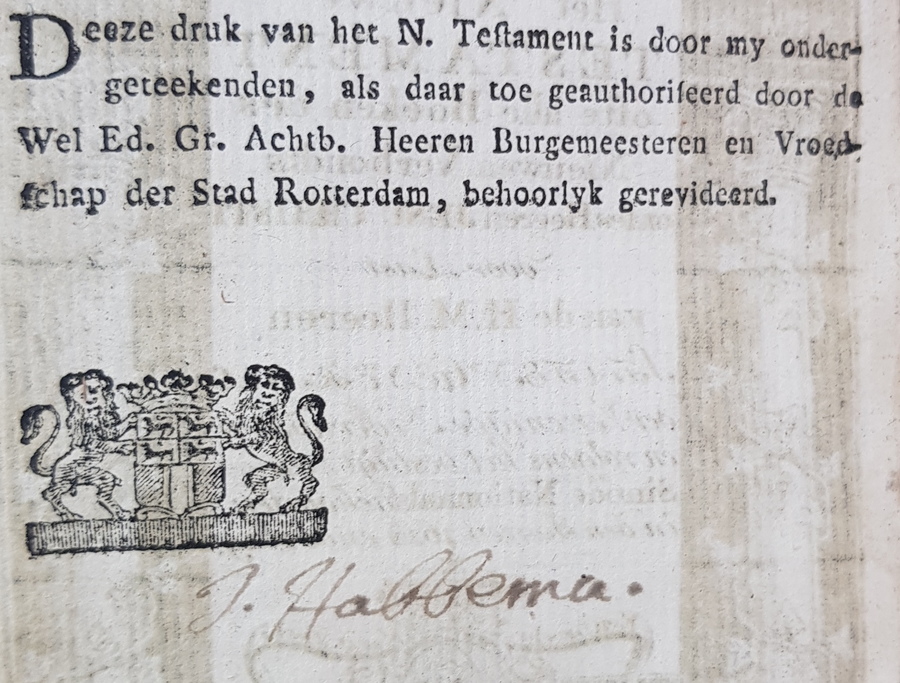 Deeze druk van het N. Teſtament is door my onder-
geteekenden, als daar toe geauthoriſeerd door de
Wel Ed. Gr. Achtb. Heeren Burgemeesteren en Vroed-
ſchap der Stad Rotterdam, behoorlyk gerevideerd.
J. Habbema.